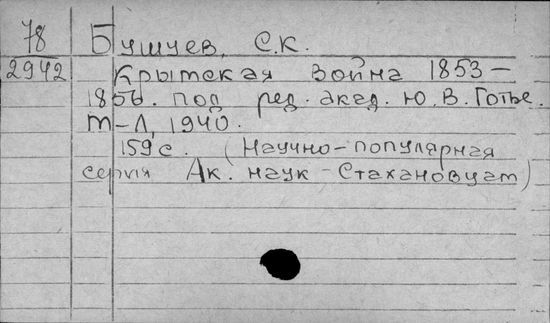 78 Бушуев, С.К.
2942 Крымская война 1853 –
1856. под ред. акад. Ю.В. Готье.
М-Л, 1940.
159 с. (Научно-популярная
серия Ак. наук - Стахановцам)